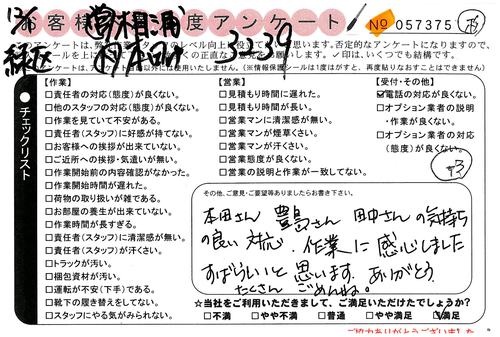 お客様満足度アンケート
No 057375
12/6
緑区
3-39
アンケートは
■チェックリスト
【作業】
□責任者の対応(態度)が良くない。
□他のスタッフの対応(態度)が良くない。
□作業を見ていて不安がある。
□責任者(スタッフ)に好感が持てない。
□お客様への挨拶が出来ていない。
□ご近所への挨拶・気遣いが無い。
□作業開始前の内容確認がなかった。
□作業開始時間が遅れた。
□荷物の取り扱いが雑である。
□お部屋の養生が出来ていない。
□作業時間が長すぎる。
□責任者(スタッフ)に清潔感が無い。
□責任者(スタッフ)が汗くさい。
□トラックが汚い。
□梱包資材が汚い。
□運転が不安(下手)である。
□靴下の履き替えをしてない。
□スタッフにやる気がみられない。
【営業】
□見積もり時間に遅れた。
□見積もり時間が長い。
□営業マンに清潔感が無い。
□営業マンが煙草くさい。
□営業マンが汗くさい。
□営業態度が良くない。
□営業の説明と作業が一致してない。
【受付・その他】
☑電話の対応が良くない。
□オプション業者の説明
・作業が良くない。
□オプション業者の対応
(態度)が良くない。
その他、ご意見・ご要望等ありましたらお書き下さい。
本田さん 豊島さん 田中さんの気持ち
の良い対応、作業に感心しました
すばらしいと思います。ありがとう
たくさん ごめんね。
☆当社をご利用いただきまして、ご満足いただけたでしょうか?
□不満 □やや不満 □普通 □やや満足 ☑満足
ご協力ありがとうございました